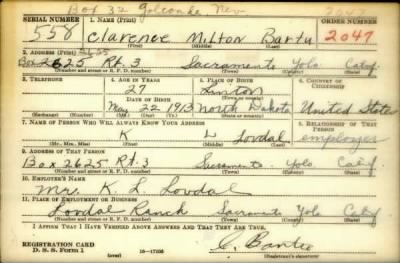 Box 32 Golconda, Nev 2047
SERIAL NUMBER 1. NAME (Print) ORDER NUMBER
558 Clarence Milton Bartu 2047
(First) (Middle) (Last)
2. ADDRESS (Print) 2625
Box 2625 Rt. 3 Sacramento Yolo Calif
(Number and street or R. F. D. number) (Town) (County) (State)
3. TELEPHONE 4. AGE IN YEARS 5. PLACE OF BIRTH 6. COUNTRY OF CITIZENSHIP
27 Linton
DATE OF BIRTH (Town or county)
May 22 1913 North Dakota United States
(Exchange) (No.) (Mo.) (Day) (Yr.) (State or country)
7. NAME OF PERSON WHO WILL ALWAYS KNOW YOUR ADDRESS 8. RELATIONSHIP OF THAT PERSON
K L Lovdal employer
(Mr., Mrs., Miss) (First) (Middle) (Last)
9. ADDRESS OF THAT PERSON
Box 2625 Rt. 3 Sacramento Yolo Calif
(Number and street or R. F. D. number) (Town) (County) (State)
10. EMPLOYER'S NAME
Mr. K. L. Lovdal
11. PLACE OF EMPLOYMENT OR BUSINESS
Lovdal Ranch Sacramento Yolo Calif
(Number and street or R. F. D. number) (Town) (County) (State)
I AFFIRM THAT I HAVE VERIFIED ABOVE ANSWERS AND THAT THEY ARE TRUE.
REGISTRATION CARD
D. S. S. Form 1 (over) 16—17105 (Registrant's signature)